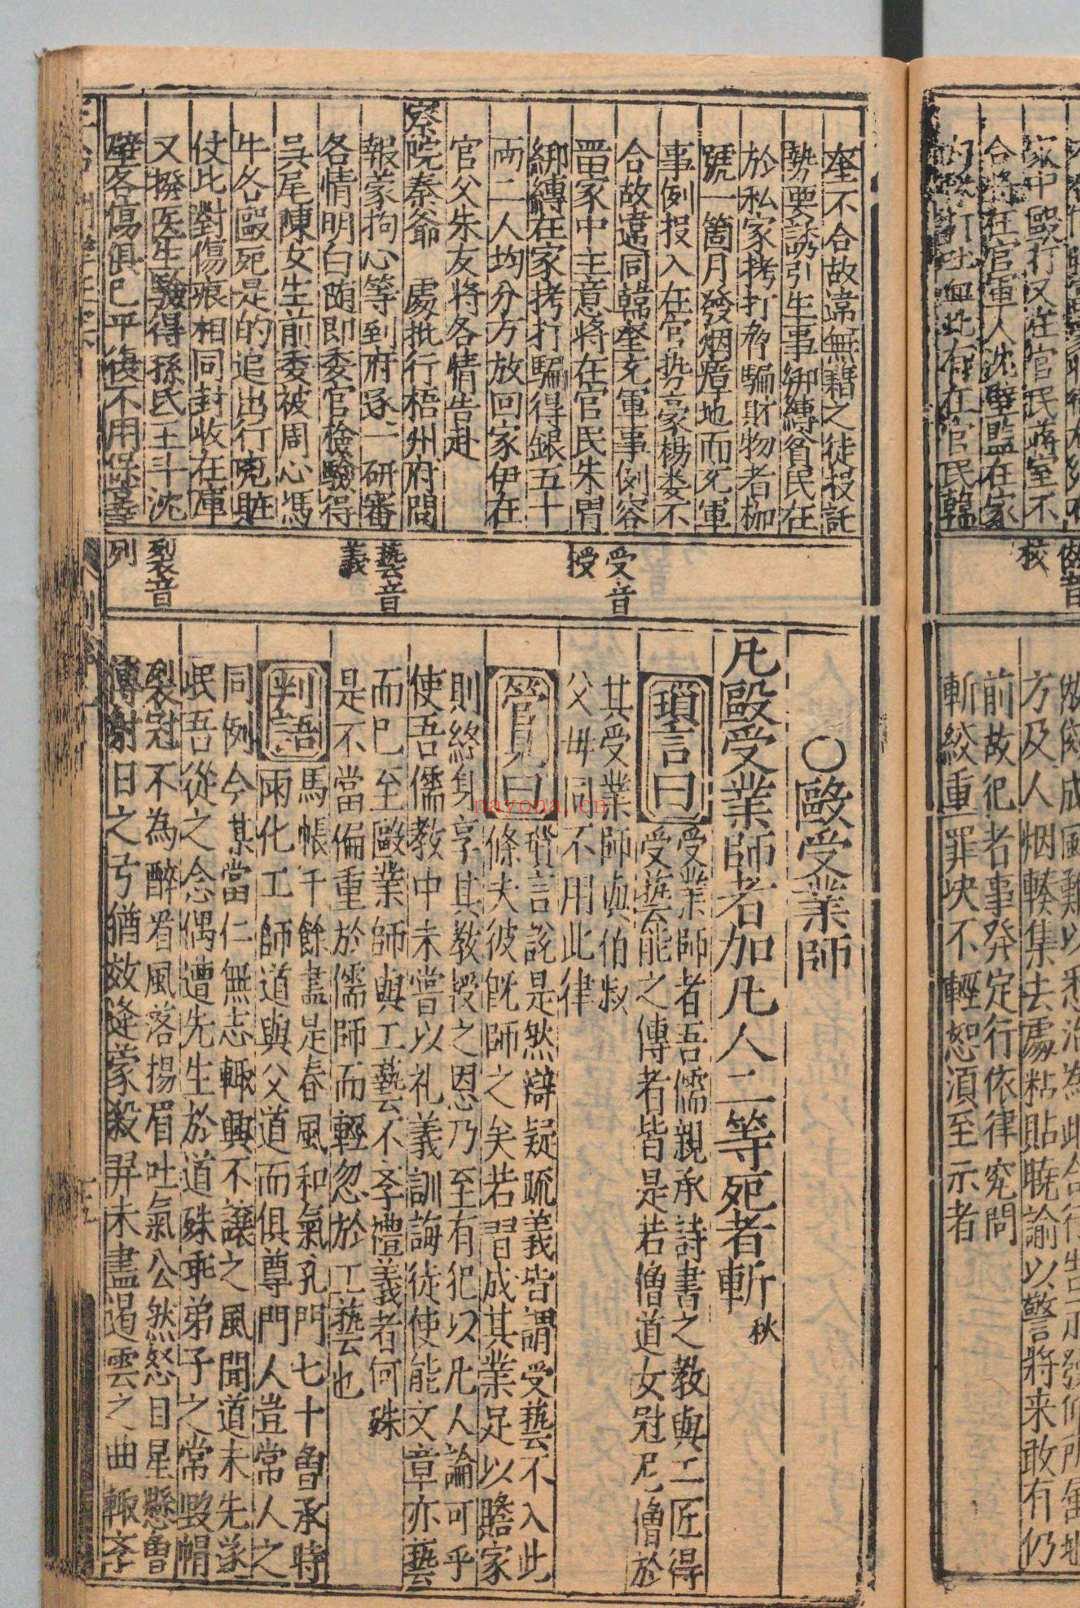 方及人烟輳集去處粘貼曉諭以警將来敢有仍
前故犯者事發定行依律究問
斬絞重罪决不輕恕湏至示者
堂不合故違無藉之徒投託
勢要誘引生事綁縛貧民在
於私家拷打脅騙財物者枷
號一箇月發烟瘴地而死軍
事例投入在官势豪楊委不
合故違同韓堂充軍事例容
留家中主意將在官民朱胃
綁縛在家拷打騙得銀五十
両二人均分方放回家伊在
官父朱友將各情告赴
察院秦爺 處批行梧州府問
報蒙拘心等到府逐一研審
各情明白随即委官檢驗得
吳尾陳女生前委被周心馮
牛各毆死是的追出行兇賍
仗比對傷痕相同封收在庫
又撥医生驗得孫氏王斗沈
璧各傷俱已平復不用保辜
受音
授
藝音
義
裂音
列
〇毆受業師
凡毆受業師者加凡人二等死者斬秋
瑣言曰
受業師者吾儒親承詩書之教與工匠得
受藝能之傳者皆是若僧道女冠尼僧於
其受業師與伯叔
父毋同不用此律
管見曰
瑣言說是然辯疑疏義皆謂受藝不入此
條夫彼旣師之矣若習成其業足以贍家
則終身享其教授之恩乃至有犯以凡人論可乎
使吾儒教中未嘗以礼義訓誨徒使能文章亦藝
而已至毆業師與工藝不孝禮義者何殊
是不當偏重於儒師而輕忽於工藝也
判語
馬帳千餘盡是春風和氣孔門七十魯承時
兩化工師道與父道而俱尊門人豈常人之
同例今某當仁無志輙興不讓之風聞道未先遂
岷吾從之念偶遭先生於道殊乖弟子之常毀帽
裂冠不為醉眉風落揚眉吐氣公然怒目星懸魯
傳射日之弓猶效逄蒙殺羿未盡遏雲之曲輙孝